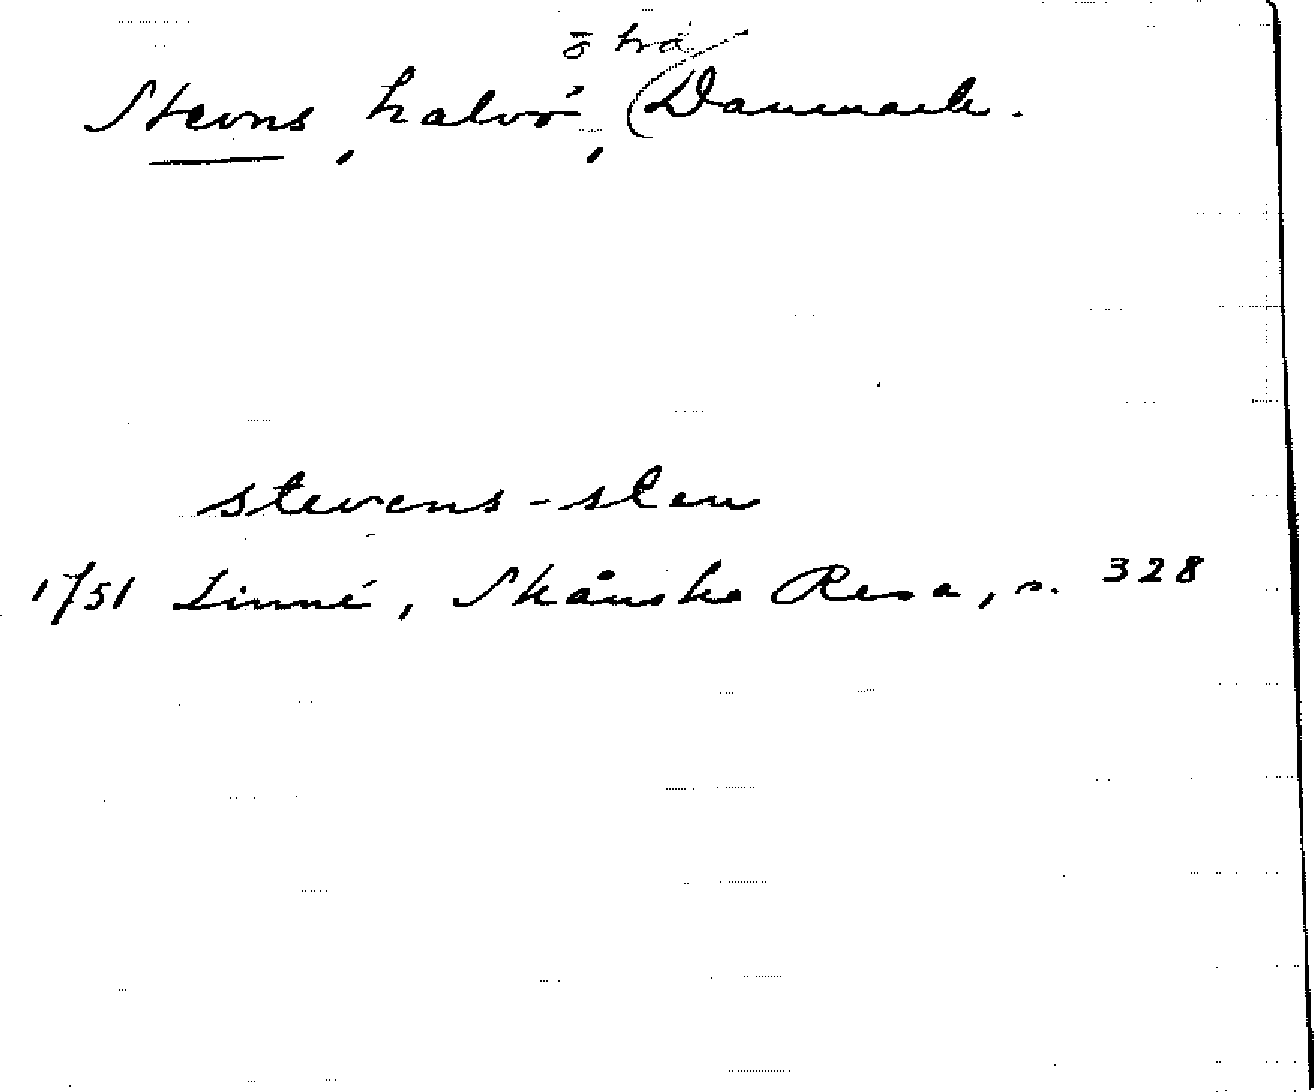 Stevns, halvö, Danmark.
stevens-sten
1751 Linné, Skånska Resa, s. 328